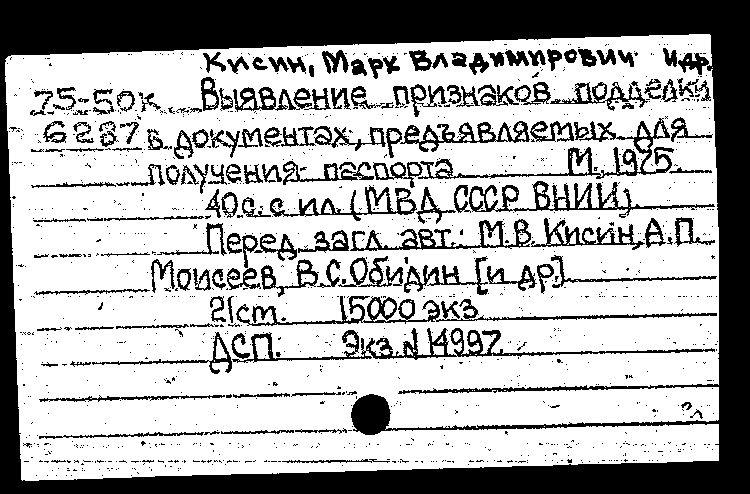 Кисин, Марк Владимирович и др.
75-50к Выявление признаков подделки
6287 в документах, предъявляемых для
получения паспорта. М., 1975.
40 с. с ил. (МВД СССР ВНИИ).
Перед загл. авт.: М.В. Кисин, А.П.
Моисеев, В.С. Обидин [и др.]
21 см. 15000 экз.
ДСП. Экз. № 14997.